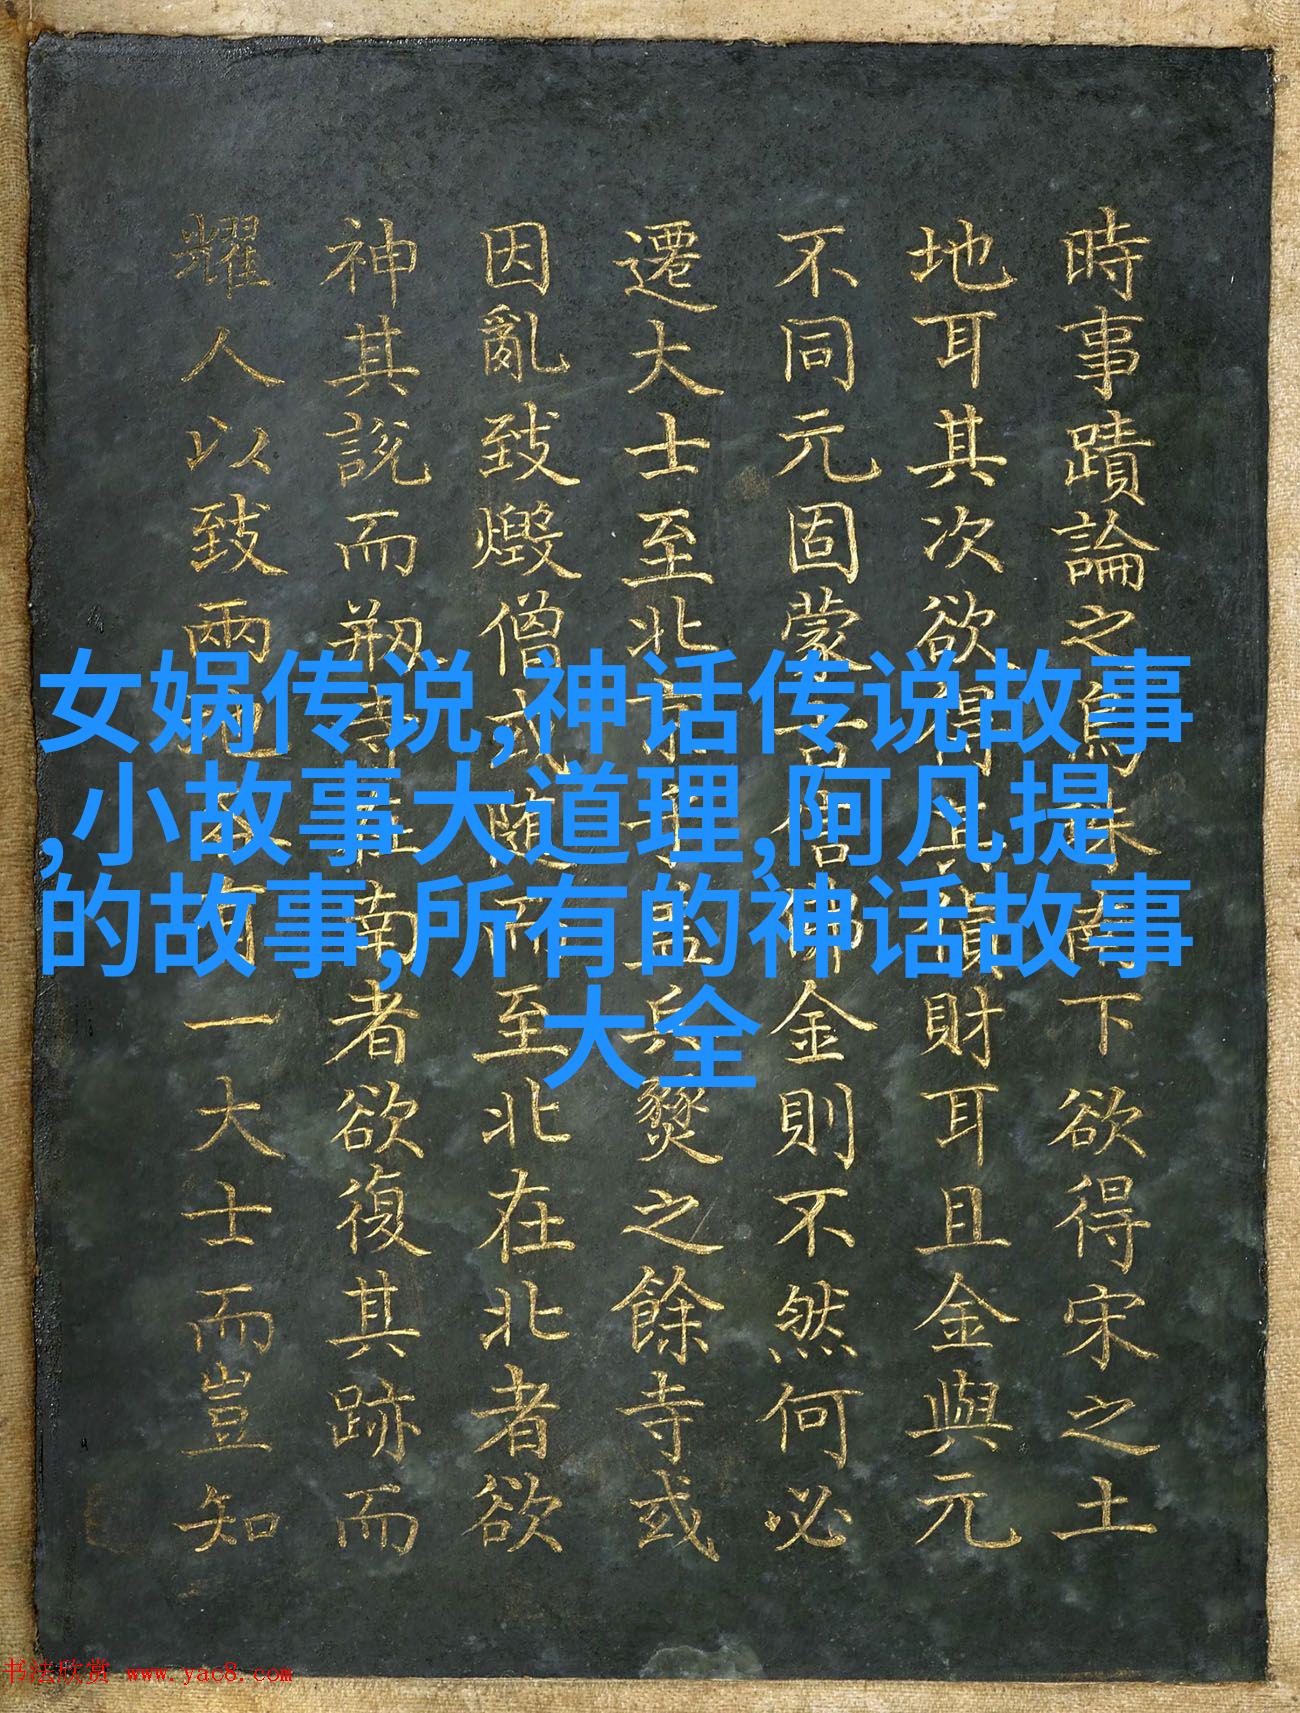 時事蹟論之烏珠南下欲得宋之土
地耳其次欲得其貨財耳且金與元
不同元固蒙古習佛金則不然何必
遷大士至北京乎且兵燹之餘寺或
因亂致燬僧或随而至北在北者欲
神其說而剏寺在南者欲復其跡而
耀人以致兩地各有一大士而豈知
女娲传说,神话传说故事
,小故事大道理,阿凡提
的故事,所有的神话故事
大全
书法欣赏 www.yac8.com